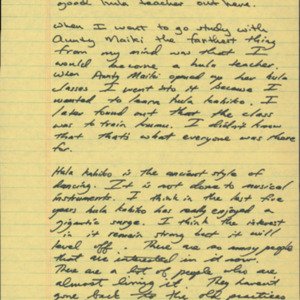 good hula teacher out here.
When I went to go study with
Aunty Maiki the farthest thing
from my mind was that I
would become a hula teacher.
When Aunty Maiki opened up her hula
classes I went into it because I
wanted to learn hula kahiko. I
later found out that the class
was to train kumu. I didn't know
that that's what everyone was there
for.
Hula kahiko is the ancient style of
dancing. It is not done to musical
instruments. I think in the last five
years hula kahiko has really enjoyed a
gigantic surge. I think the interest
in it remain strong but it will
level off. There are so many people
that are interested in it now.
There are a lot of people who are
almost living it. They haven't
gone back to the old practices